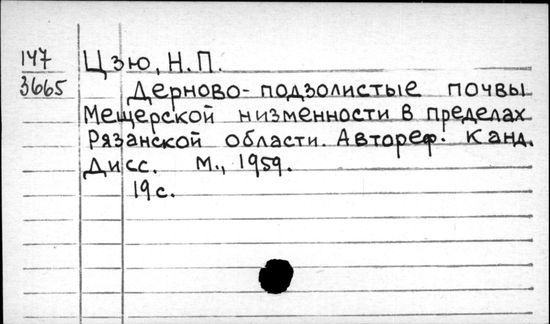 147 Цзю, Н.П.
3665 Дерново-подзолистые почвы
Мещерской низменности в пределах
Рязанской области. Автореф. Канд.
Дисс. М., 1959.
19с.